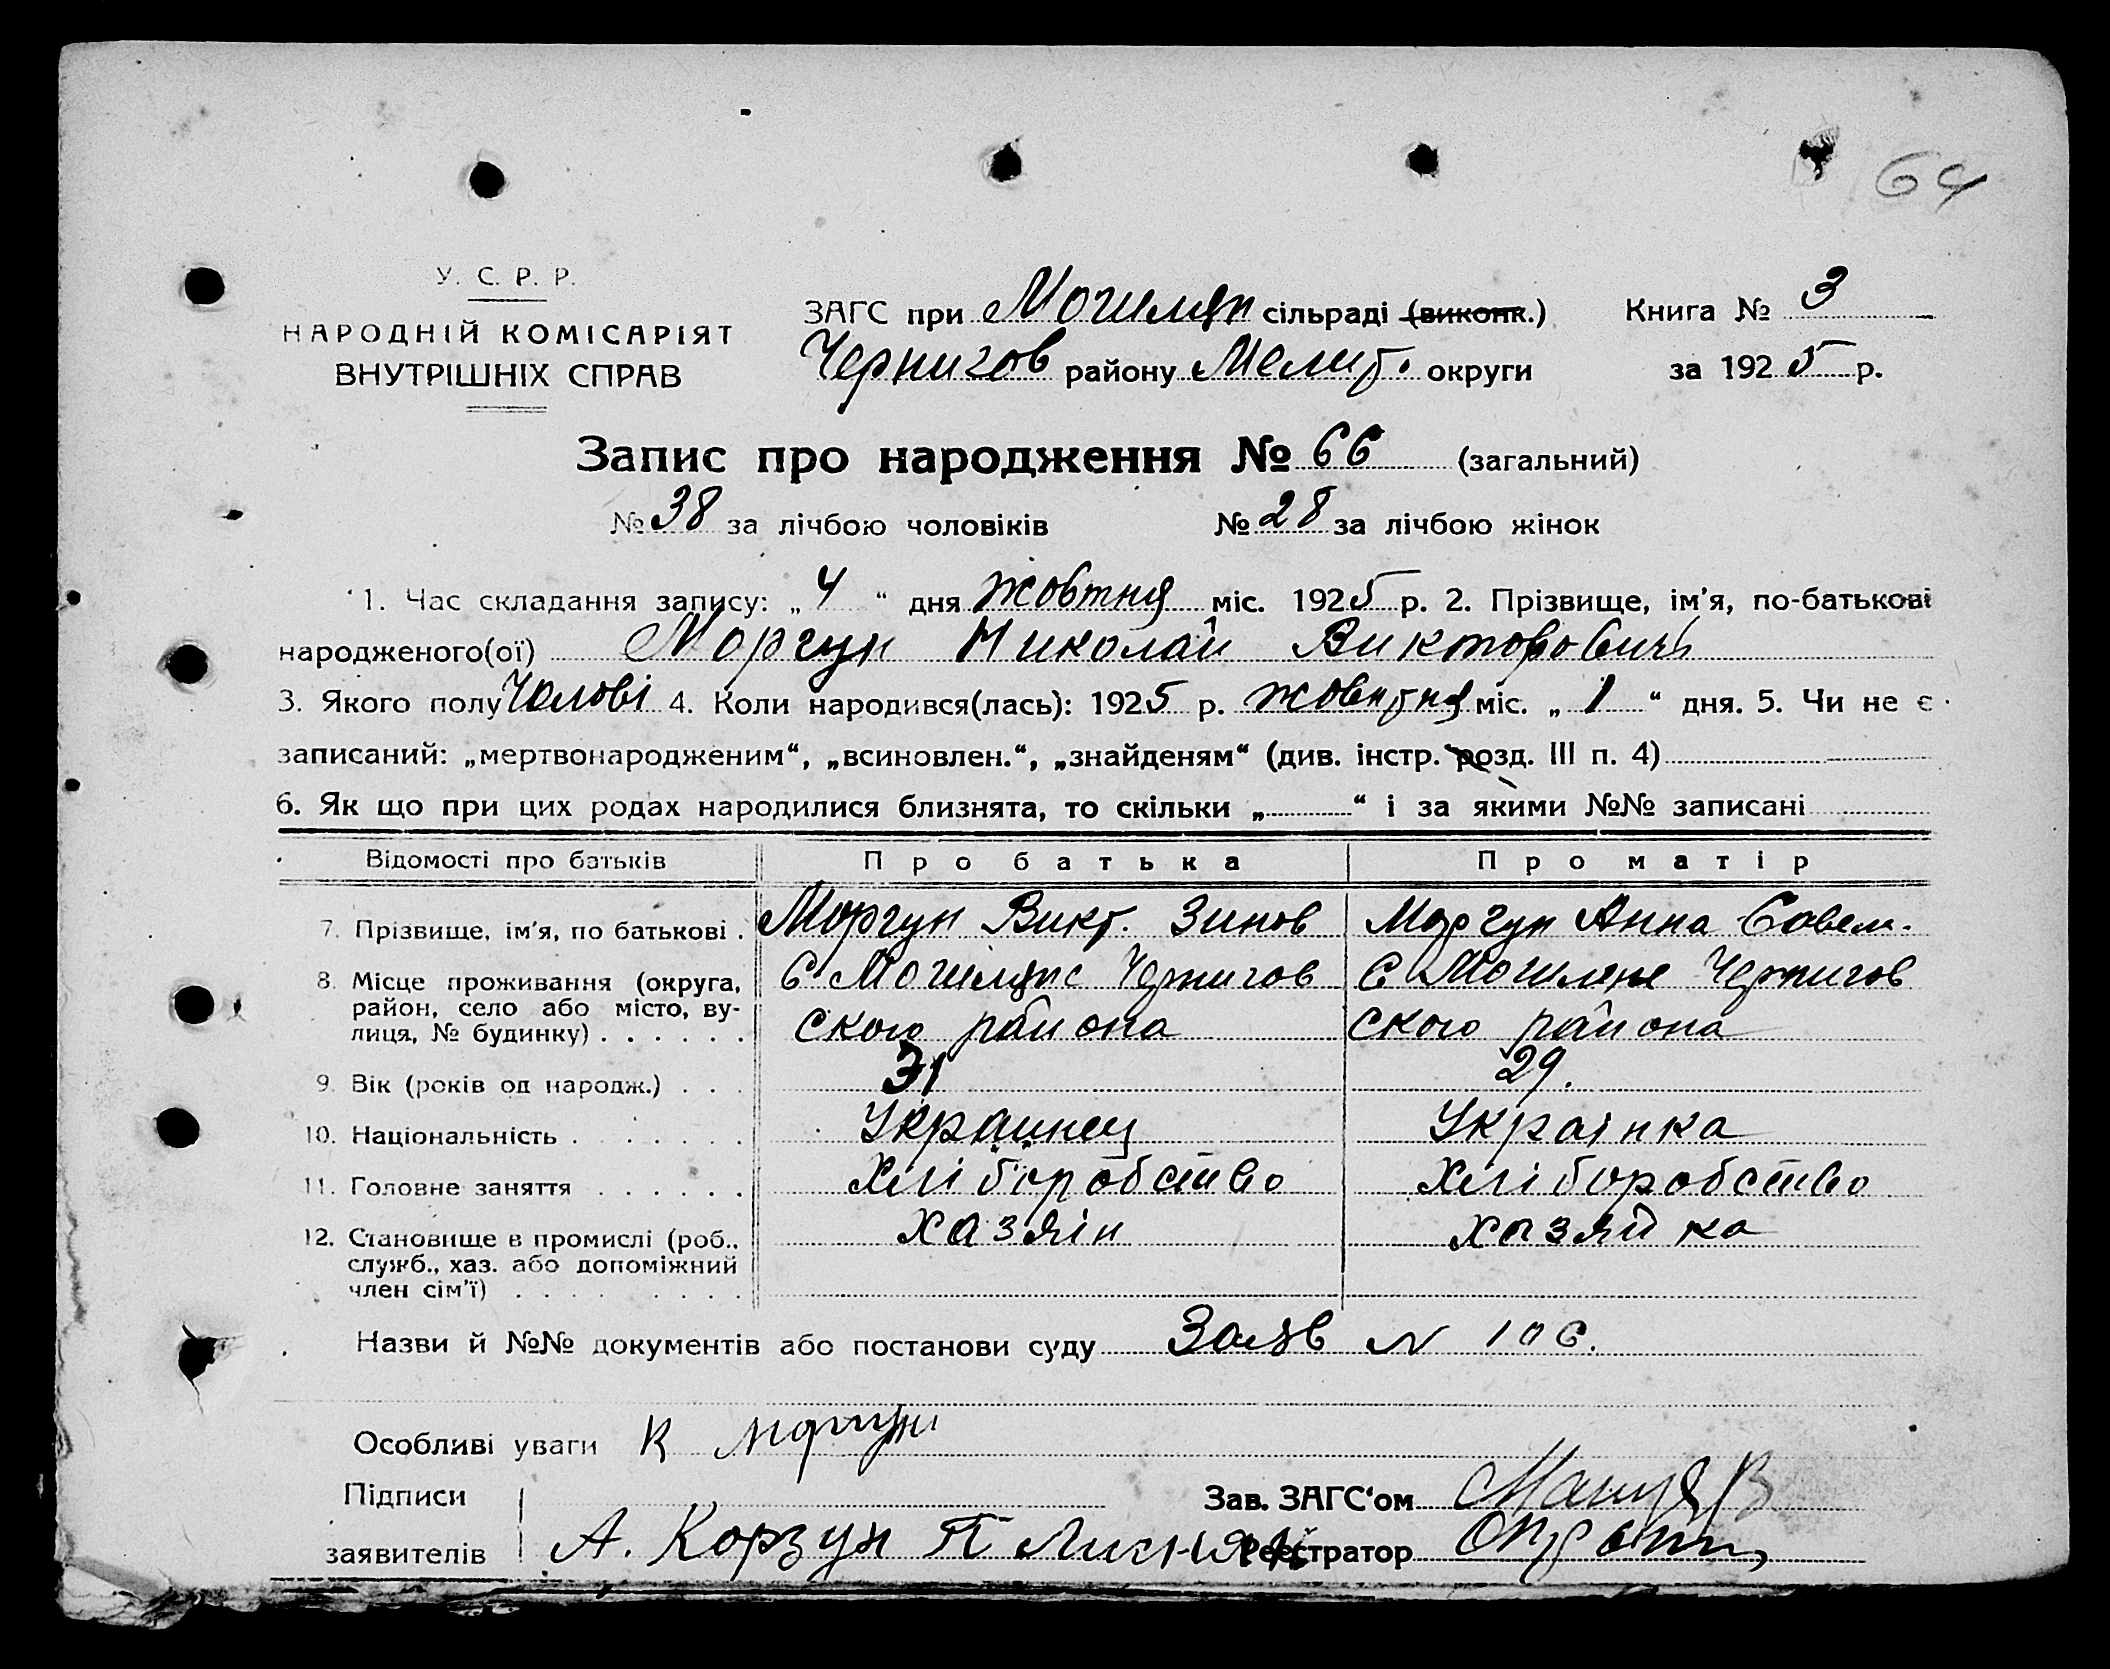 64
У. С. Р. Р.
НАРОДНІЙ КОМІСАРІЯТ
ВНУТРІШНІХ СПРАВ
ЗАГС при Могилян сільраді (виконк.) Книга № 3
Чернигов району Мелит. округи за 1925 р.
Запис про народження № 66 (загальний)
№ 38 за лічбою чоловіків № 28 за лічбою жінок
1. Час складання запису: „4“ дня жовтня міс. 1925 р. 2. Прізвище, ім'я, по-батькові
народженого(ої) Моргун Николай Викторович
3. Якого полу Чолові 4. Коли народився(лась): 1925 р. жовтня міс. „1“ дня. 5. Чи не є
записаний: „мертвонародженим“, „всиновлен.“, „знайденям“ (див. інстр. розд. III п. 4)
6. Як що при цих родах народилися близнята, то скільки „ “ і за якими №№ записані
Відомості про батьків Про батька Про матір
7. Прізвище, ім'я, по батькові . Моргун Викт. Зинов Моргун Анна Савел.
8. Місце проживання (округа, район, село або місто, вулиця, № будинку) . . . . . . С Чернигов С Чернигов
ского района ского района
9. Вік (років од народж.) . . . 31 29.
10. Національність . . . . . . Украинец Українка
11. Головне заняття . . . . . . Хліборобство Хліборобство
12. Становище в промислі (роб., служб., хаз. або допоміжний член сім'ї) . . . . . . . хазяін хазяйка
Назви й №№ документів або постанови суду Заяв N 106.
Особливі уваги К Моргун
Підписи Зав. ЗАГС'ом
заявителів А. Корзун П Реєстратор